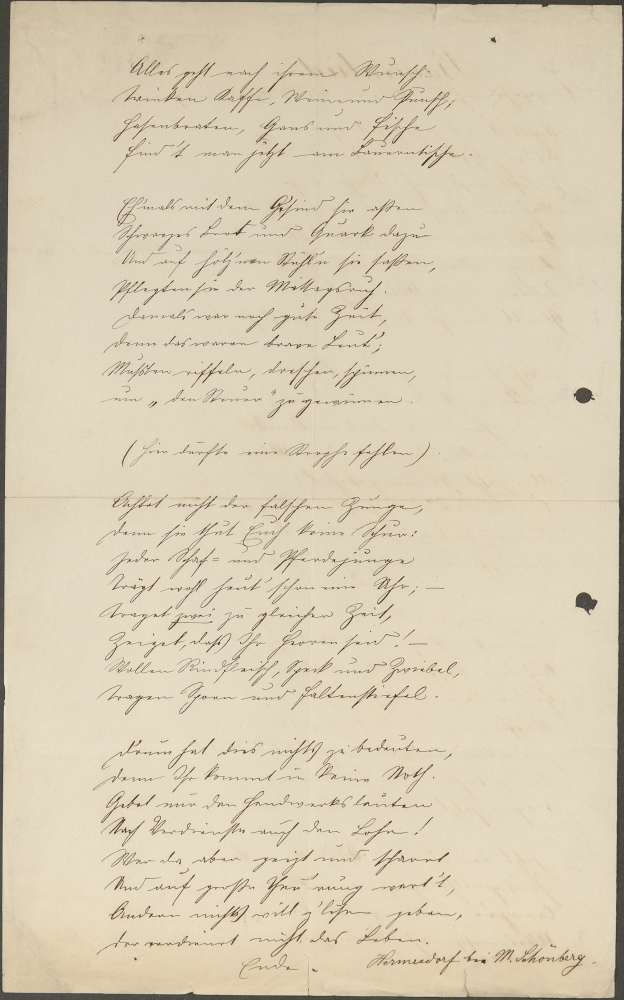 Alles geht nach ihrem Wunsch:
Trinken Kaffe, Wein und Punsch,
Hasenbraten, Gans und Fische
find't man jetzt am Bauerntische.
Ehmals mit dem Gesind sie aßen
Schwarzes Brot und Quark dazu
Und auf hölz'nen Stühl'n sie saßen,
Pflegten sie der Mittagsruh.
Damals war noch gute Zeit,
denn das waren brave Leut';
Mußten riffeln, dreschen, spinnen,
um „den Steuer“ zu gewinnen.
(Hier dürfte eine Strophe fehlen).
Achtet nicht der falschen Zunge,
denn sie thut Euch keine Schur:
Jeder Schaf- und Pferdejunge
trägt wohl heut' schon eine Uhr; –
traget zwei zu gleicher Zeit,
Zeiget, daß Ihr Herren seid! –
Wollen Rindfleisch, Speck und Zwiebel,
tragen Sporn und Faltenstiefel.
Drum hat dies nichts zu bedeuten,
denn Ihr kommt in keine Noth.
Gebet nur den Handwerksleuten
Nach Verdienste auch den Lohn!
Wer da aber geizt und scharrt
Und auf große Theu'rung wart't,
Andern nichts will geben,
der verdienet nicht das Leben.
Ende.
Hermesdorf bei M. Schönberg.